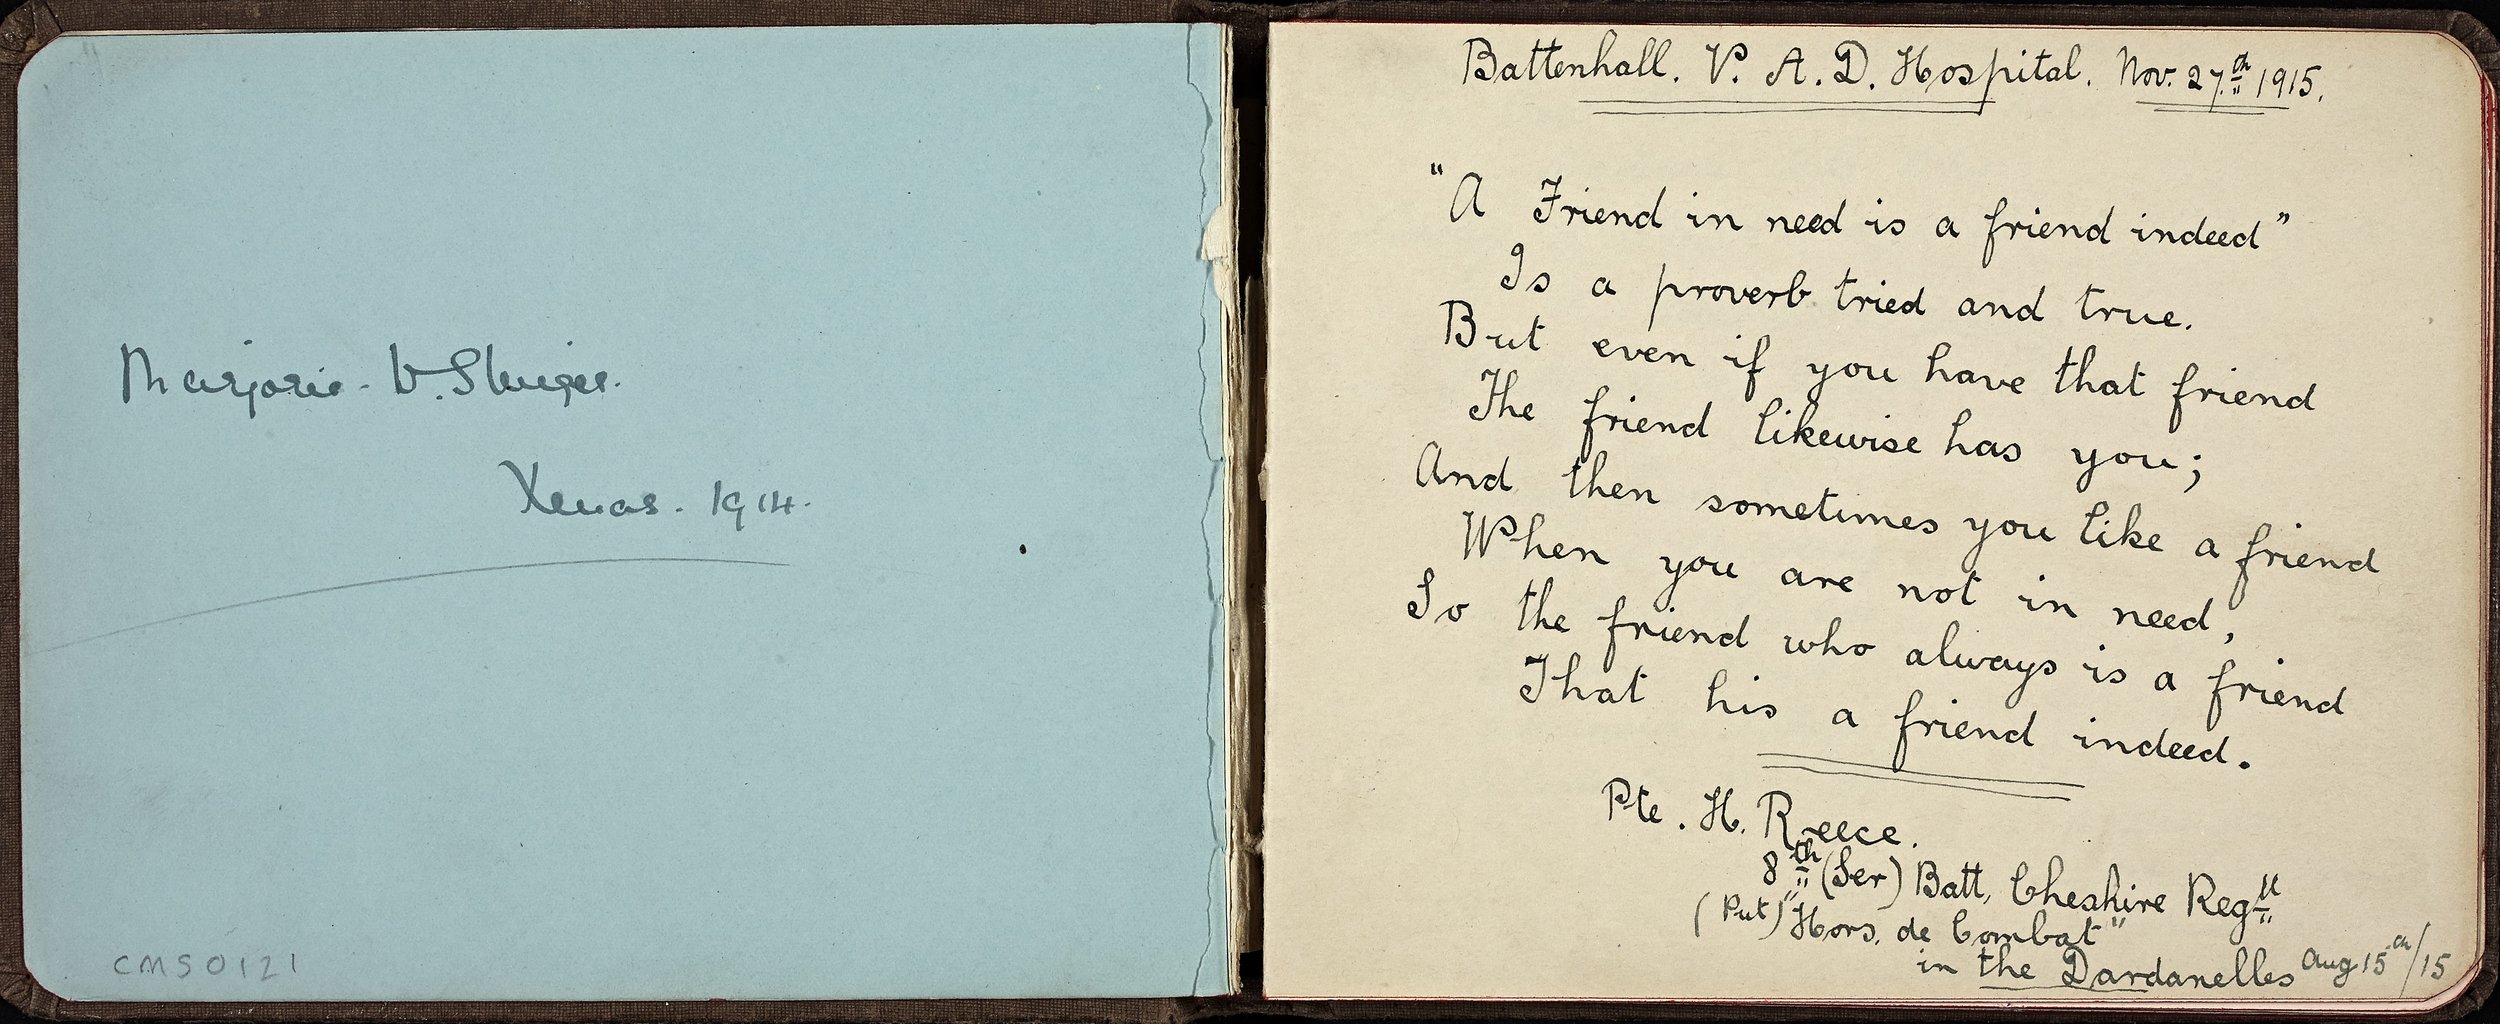 Marjorie. V.
Xmas. 1914.
CMS0121
Battenhall. V. A. D. Hospital. Nov. 27.th 1915.
"A Friend in need is a friend indeed"
Is a proverb tried and true.
But even if you have that friend
The friend likewise has you;
And then sometimes you like a friend
When you are not in need,
So the friend who always is a friend
That his a friend indeed.
Pte. H. Reece.
8th (Ser) Batt, Cheshire Regtt
(Put) "Hors. de Combat"
in the Dardanelles Aug 15th/15